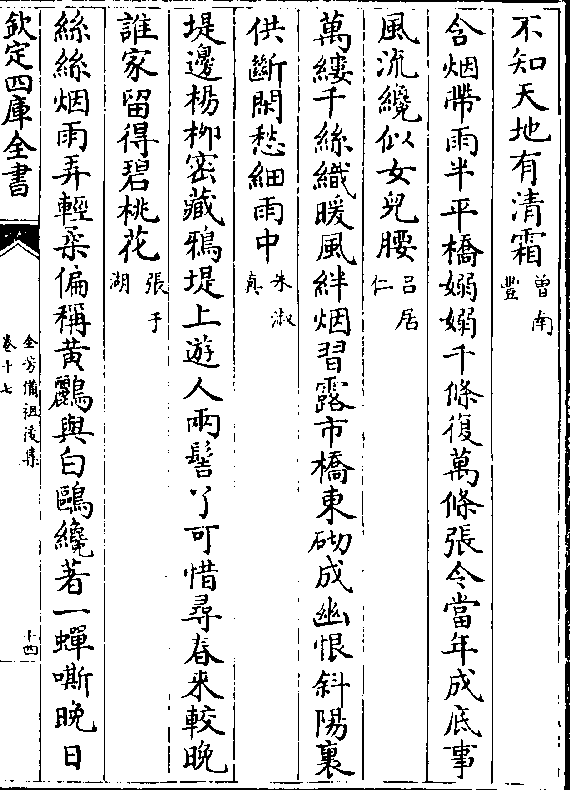 不知天地有清霜曾南豐
含烟帶雨半平橋嫋嫋千條復萬條張令當年成底事
風流纔似女兒腰吕居仁
萬縷千絲織暖風絆烟習露市橋東砌成幽恨斜陽裏
供斷閑愁細雨中朱淑真
堤邊楊柳宻藏鴉堤上遊人兩髻丫可惜尋春来較晚
誰家留得碧桃花張于湖
絲絲烟雨弄輕柔偏稱黄鸝與白鷗纔著一蟬嘶晚日
欽定四庫全書
全芳備祖後集
卷十七
十四